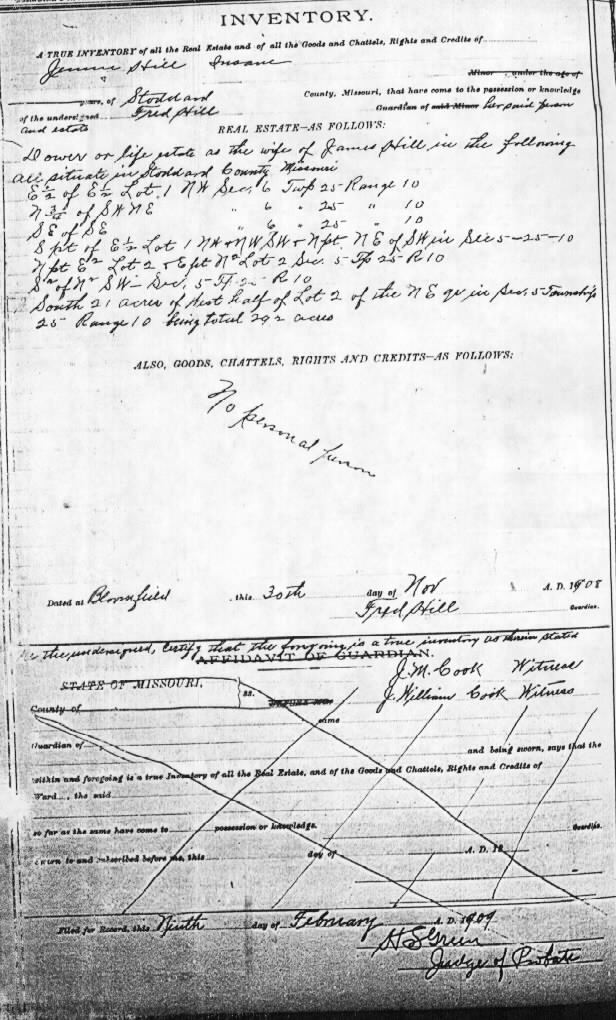 INVENTORY.
A TRUE INVENTORY of all the Real Estate and of all the Goods and Chattels, Rights and Credits of
Jennie Hill Insane
Minor , under the age of
years, of Stoddard County, Missouri, that have come to the possession or knowledge
of the undersigned Fred Hill Guardian of said Minor her said person
and estate
REAL ESTATE—AS FOLLOWS:
Dower or life estate as the wife of James Hill in the following
all situate in Stoddard County Missouri
E½ of E½ Lot 1 NW Sec, 6 Twp 25 Range 10
N ¾ of SW NE " 6 " 25 " 10
SE of SE " 6 " 25 " 10
S pt of E½ Lot 1 NW & NW SW & N pt. NE of SW in Sec 5-25-10
N pt E½ Lot 2 & E pt N½ Lot 2 Sec. 5 Tp 25 R 10
of SW Sec, 5 Tp R 10
South 21 acres of West half of Lot 2 of the N E qr in Sec, 5 Township
25 Range 10 being total 292 acres
ALSO, GOODS, CHATTELS, RIGHTS AND CREDITS—AS FOLLOWS:
No personal
Dated at Bloomfield , this 30th day of Nov A. D. 1908
Fred Hill Guardian.
We the, undersigned, Certify that the forgoing is a true inventory as therein stated
AFFIDAVIT OF GUARDIAN.
J. M. Cook Witness
STATE OF MISSOURI, ss. BEFORE ME,
J. William Cook Witness
County of
came
Guardian of and being sworn, says that the
within and foregoing is a true Inventory of all the Real Estate, and of the Goods and Chattels, Rights and Credits of
Ward , the said
so far as the same have come to possession or knowledge.
Guardian.
Sworn to and subscribed before me, this day of A. D. 19
Filed for Record, this Ninth day of February A. D. 1909
H S Green
Judge of Probate